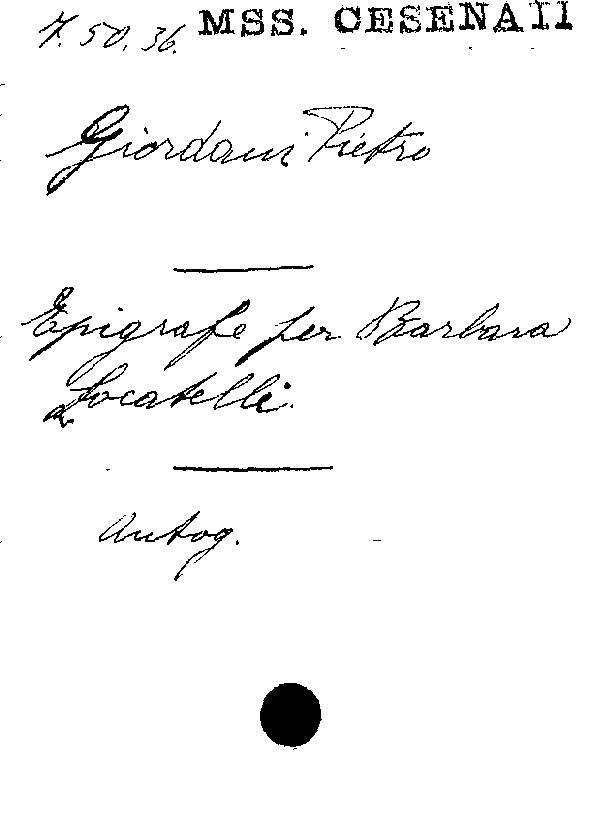 7. 50. 36. MSS. CESENATI
Giordani Pietro
Epigrafe per Barbara
Locatelli.
Autog.